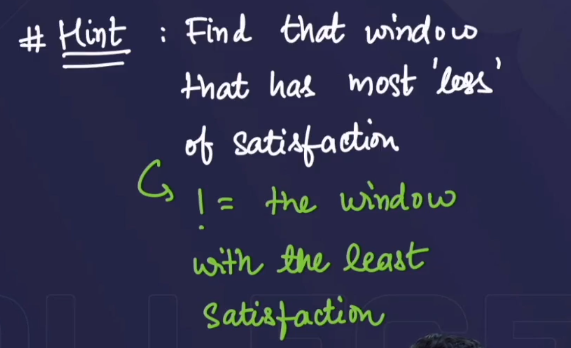 # Hint : Find that window
that has most 'loss'
of satisfaction
!= the window
with the least
Satisfaction